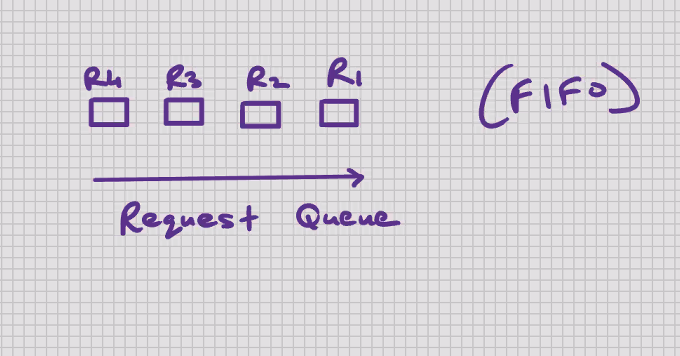 R4 R3 R2 R1 (FIFO)
Request Queue